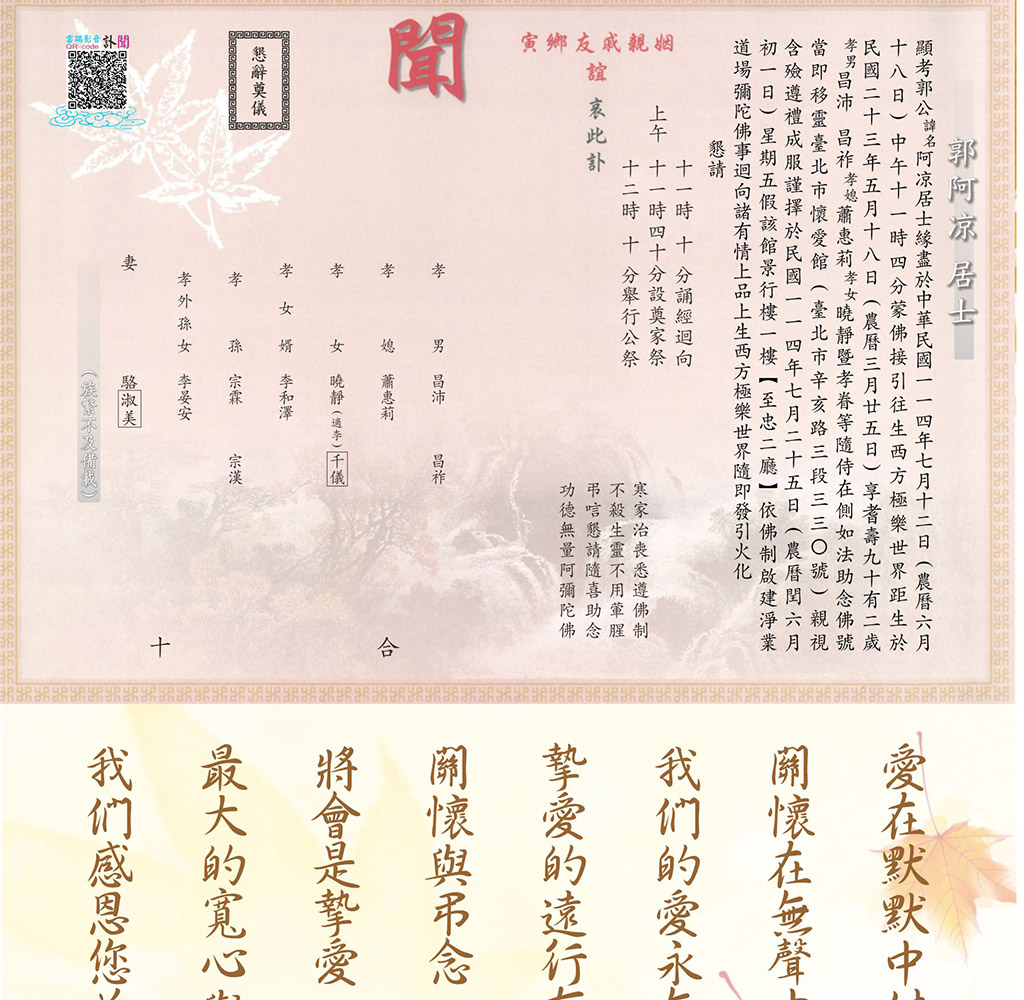 郭阿凉 居士
顯考郭公諱名阿凉居士緣盡於中華民國一一四年七月十二日(農曆六月
十八日)中午十一時四分蒙佛接引往生西方極樂世界距生於
民國二十三年五月十八日(農曆三月廿五日)享耆壽九十有二歲
孝男昌沛 昌祚孝媳蕭惠莉孝女曉靜暨孝眷等隨侍在側如法助念佛號
當即移靈臺北市懷愛館(臺北市辛亥路三段三三〇號)親視
含殮遵禮成服謹擇於民國一一四年七月二十五日(農曆閏六月
初一日)星期五假該館景行樓一樓【至忠二廳】依佛制啟建淨業
道場彌陀佛事迴向諸有情上品上生西方極樂世界隨即發引火化
懇請
十一時 十 分誦經迴向
上午 十一時四十分設奠家祭
十二時 十 分舉行公祭
寅鄉友戚親姻
誼
哀此訃
聞
寒家治喪悉遵佛制
不殺生靈不用葷腥
弔唁懇請隨喜助念
功德無量阿彌陀佛
孝 男 昌沛 昌祚
孝 媳 蕭惠莉
孝 女 曉靜(適李)千儀
孝 女 婿 李和澤
孝 孫 宗霖 宗漢
孝外孫女 李晏安
妻 駱淑美
(族繁不及備載)
合
十
懇辭奠儀
雲端影音訃聞
QR-code
愛在默默中
關懷在無聲
我們的愛永
摯愛的遠行
關懷與弔念
將會是摯愛
最大的寬心
我們感恩您